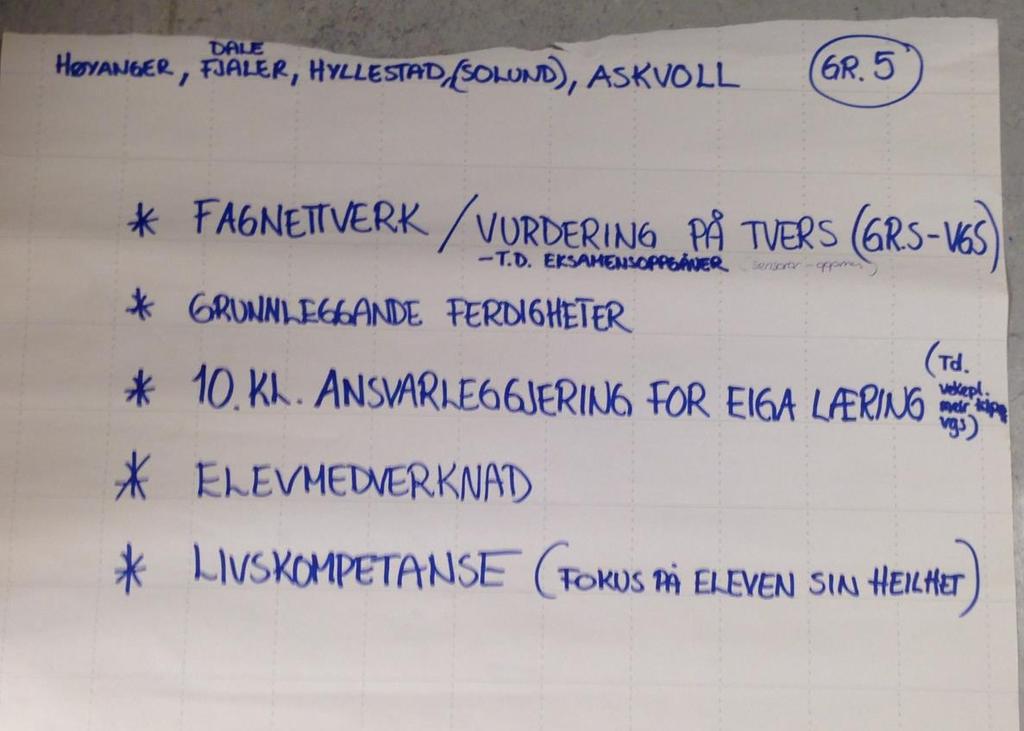 DALE
HØYANGER, FJALER, HYLLESTAD, (SOLUND), ASKVOLL
GR. 5
* FAGNETTVERK / VURDERING PÅ TVERS (GR.S-VGS)
-T.D. EKSAMENSOPPGÅVER
* GRUNNLEGGANDE FERDIGHETER
* 10. KL. ANSVARLEGGJERING FOR EIGA LÆRING
(Td.
vekepl.
meir
vgs)
* ELEVMEDVERKNAD
* LIVSKOMPETANSE (FOKUS PÅ ELEVEN SIN HEILHET)